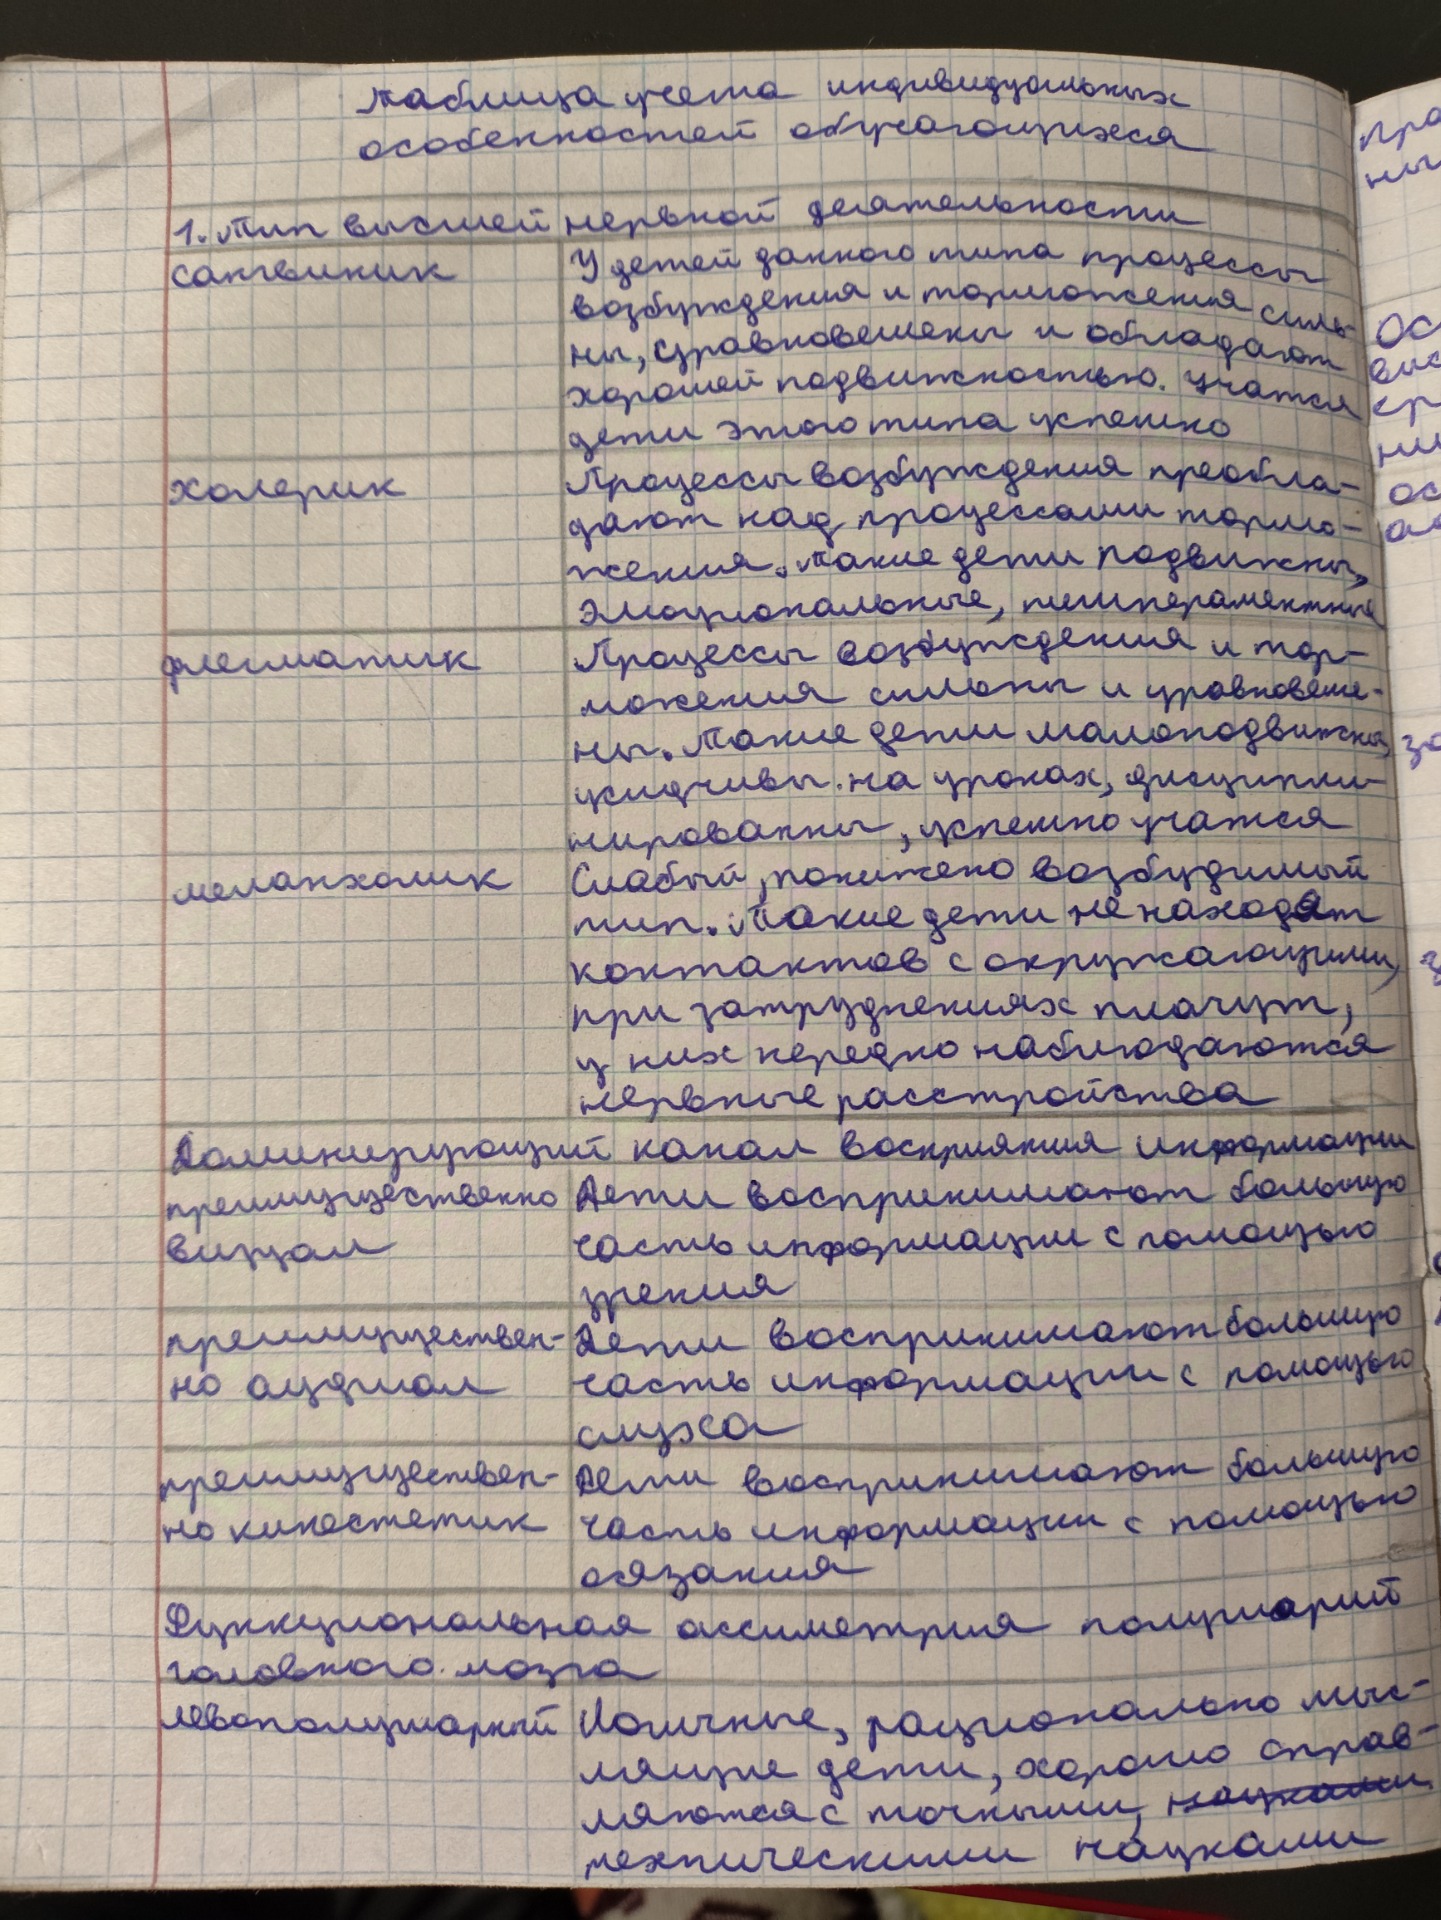 Таблица учета индивидуальных
особенностей обучающихся
1. Тип высшей нервной деятельности
сангвиник
У детей данного типа процессы
возбуждения и торможения силь-
ны, уравновешены и обладают
хорошей подвижностью. Учатся
дети этого типа успешно
холерик
Процессы возбуждения преобла-
дают над процессами тормо-
жения. Такие дети подвижны,
эмоциональные, темпераментные
флегматик
Процессы возбуждения и тор-
можения сильны и уравновеше-
ны. Такие дети малоподвижны,
усидчивы на уроках, дисципли-
нированны, успешно учатся
меланхолик
Слабый, понижено возбудимый
тип. Такие дети не находят
контактов с окружающими,
при затруднениях плачут,
у них нередко наблюдаются
нервные расстройства
Доминирующий канал восприятия информации
преимущественно
визуал
Дети воспринимают большую
часть информации с помощью
зрения
преимуществен-
но аудиал
Дети воспринимают большую
часть информации с помощью
слуха
преимуществен-
но кинестетик
Дети воспринимают большую
часть информации с помощью
осязания
Функциональная ассиметрия полушарий
головного мозга
левополушарный
Логичные, рационально мыс-
лящие дети, хорошо справ-
ляются с точными, науками
техническими науками